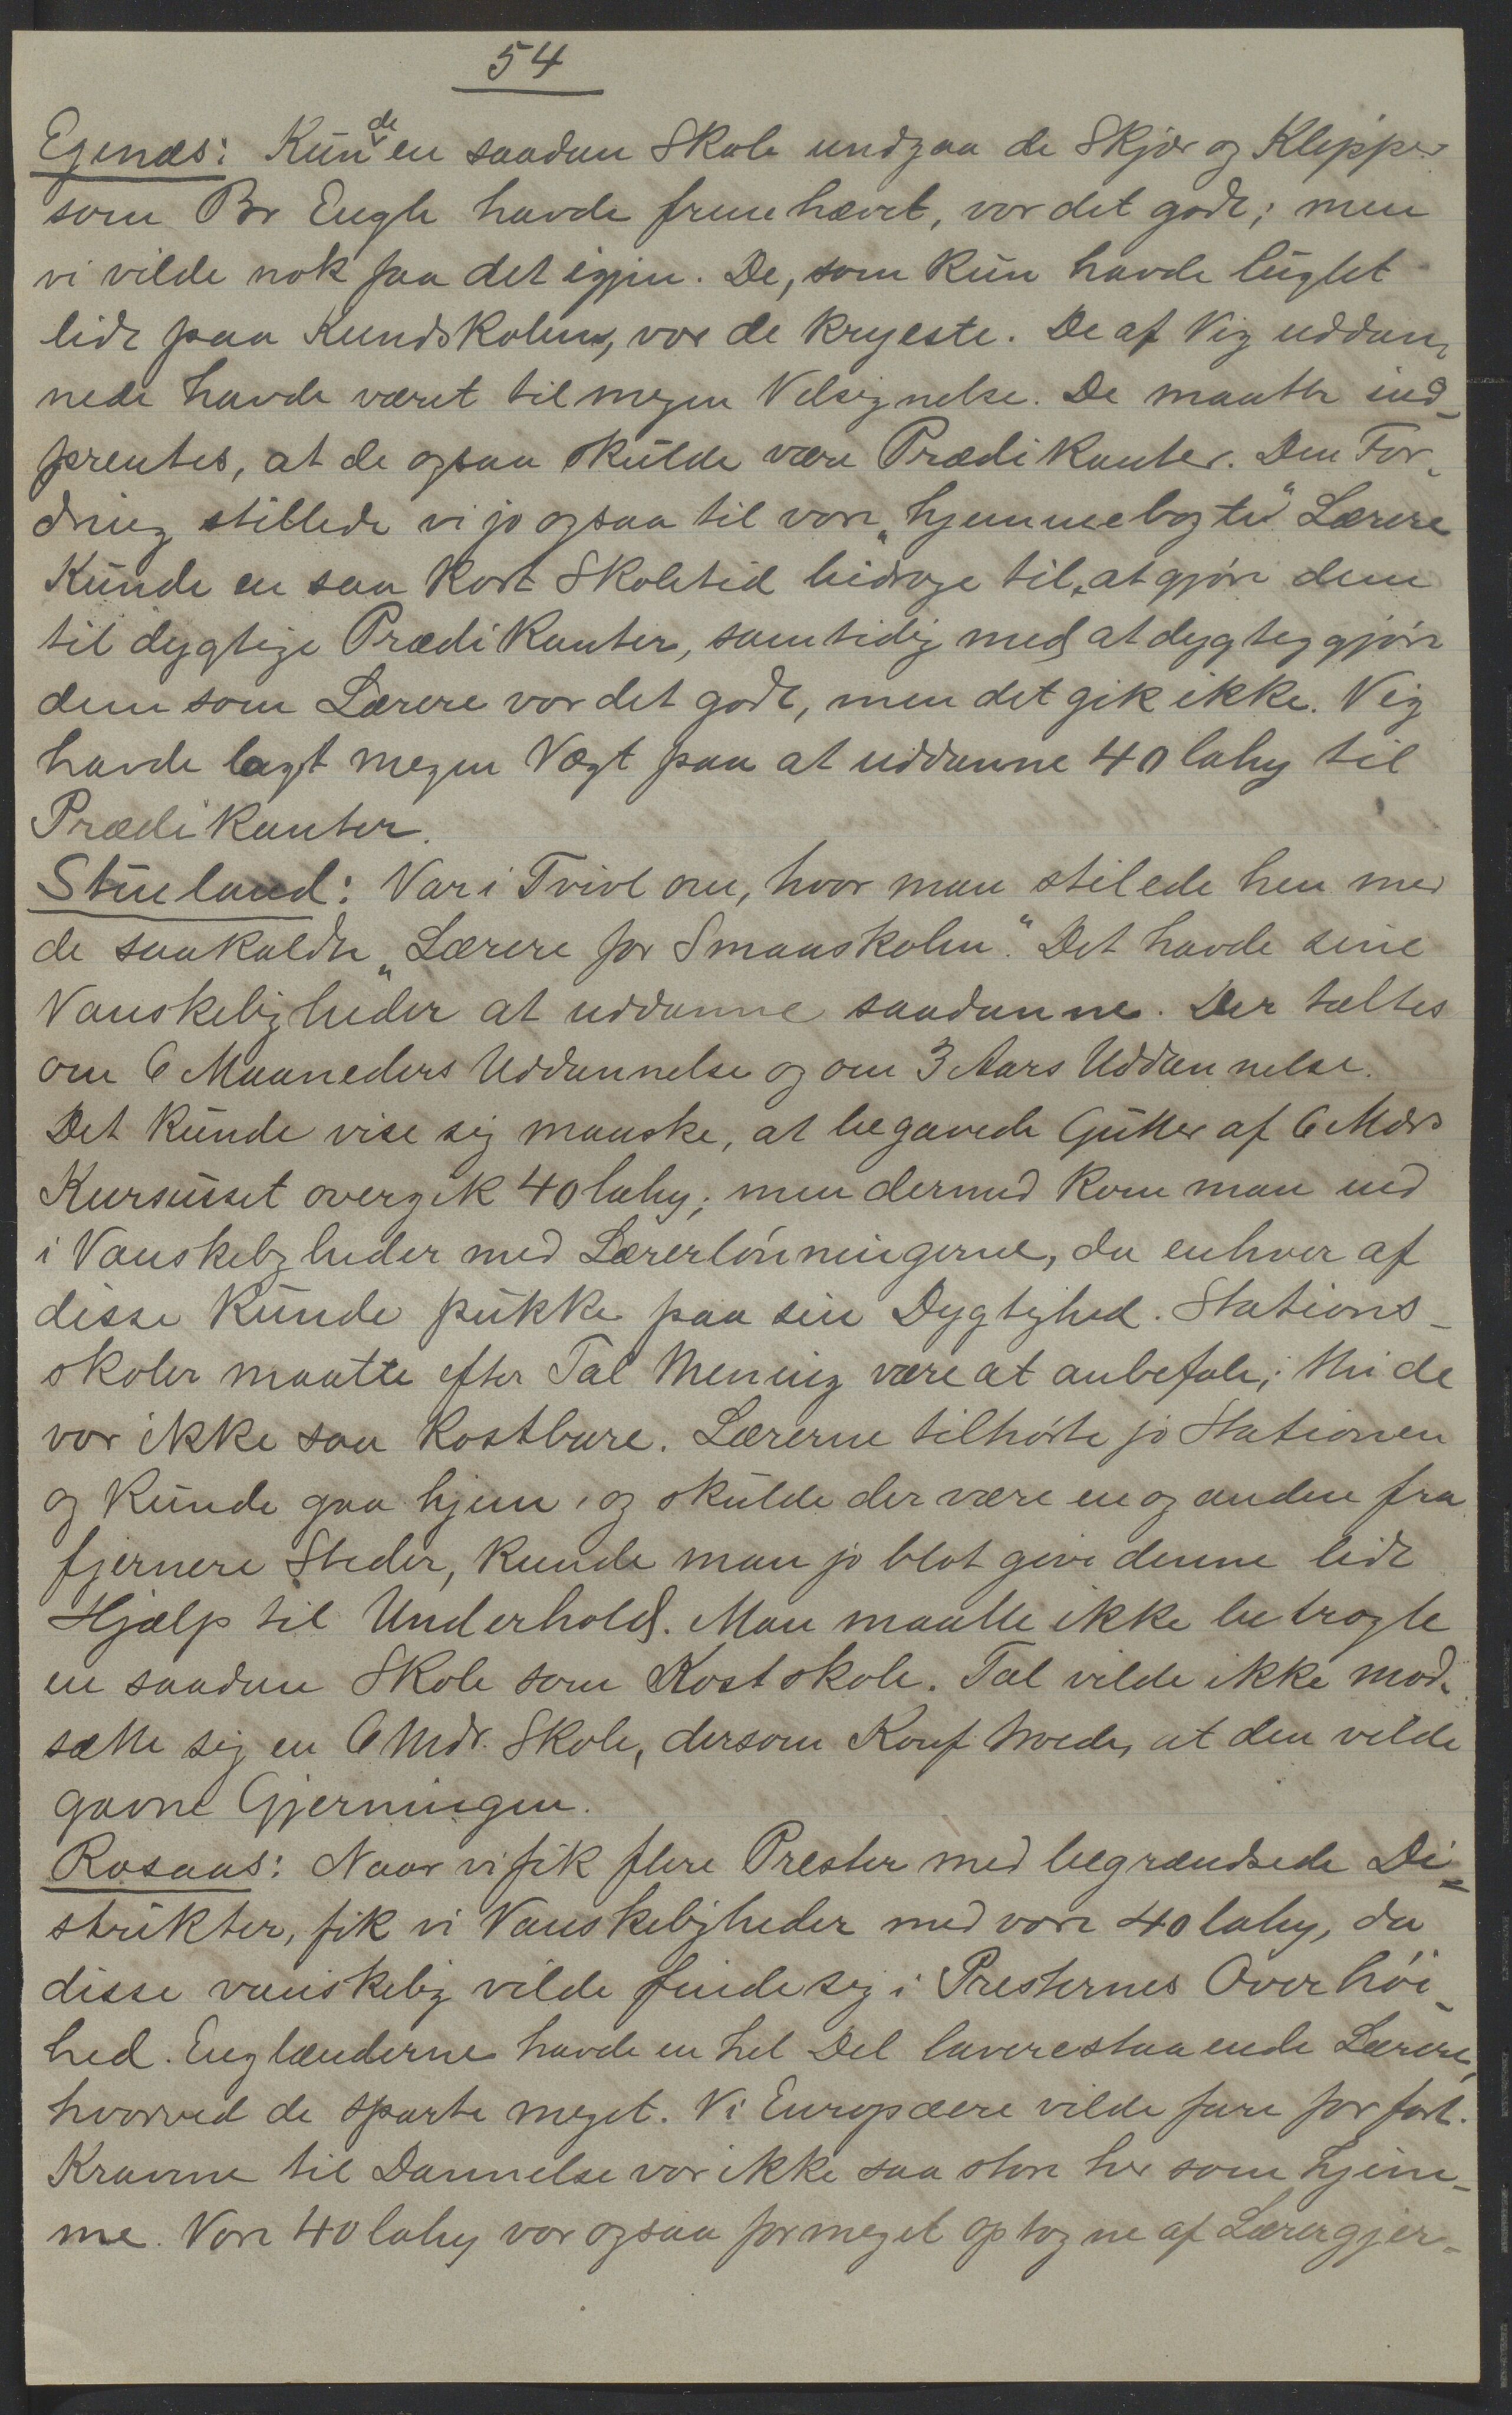 54
Egenæs: Kunde en saadan Skole undgaa de Skjær og Klipper
som Br Engh havde fremhævet, var det godt; men
vi vilde nok faa det igjen. De, som kun havde lugtet
lidt paa Kundskaben, var de kryeste. De af Vig uddan-
nede havde været til megen Velsignelse. De maatte ind-
prentes, at de ogsaa skulde være Prædikanter. Den For-
dring stillede vi jo ogsaa til vore „hjemmebagte" Lærere
Kunde en saa kort Skoletid bidrage til, at gjøre dem
til dygtige Prædikanter, samtidig med at dygtiggjøre
dem som Lærere var det godt, men det gik ikke. Vig
havde lagt megen Vægt paa at uddanne 40 lahy til
Prædikanter.
Stueland: Var i Tvivl om, hvor man stilede hen med
de saakaldte „Lærere for Smaaskolen". Det havde sine
Vanskeligheder at uddanne saadanne. Der taltes
om 6 Maaneders Uddannelse og om 3 Aars Uddannelse.
Det kunde vise sig maaske, at begavede Gutter af 6 Mdrs
Kursusset overgik 40 lahy; men dermed kom man ind
i Vanskeligheder med Lærerlönningerne, da enhver af
disse kunde pukke paa sin Dygtighed. Stations-
skoler maatte efter Tal Mening være at anbefale; thi de
var ikke saa kostbare. Lærerne tilhörte jo Stationen
og kunde gaa hjem, og skulde der være en og anden fra
fjernere Steder, kunde man jo blot give denne lidt
Hjælp til Underhold. Man maatte ikke betragte
en saadan Skole som Kostskole. Tal vilde ikke mod-
sætte sig en 6 Mdr. Skole, dersom Konf troede, at den vilde
gavne Gjerningen.
Rosaas: Naar vi fik flere Prester med begrændsede Di-
strikter, fik vi Vanskeligheder med vore 40 lahy, da
disse vanskelig vilde finde sig i Presternes Overhöi-
hed. Englænderne havde en hel Del laverestaaende Lærere,
hvorved de sparte meget. Vi Europæere vilde fare for fort.
Kravene til Dannelse var ikke saa store her som hjem-
me. Vore 40 lahy var ogsaa formeget optagne af Lærergjer-